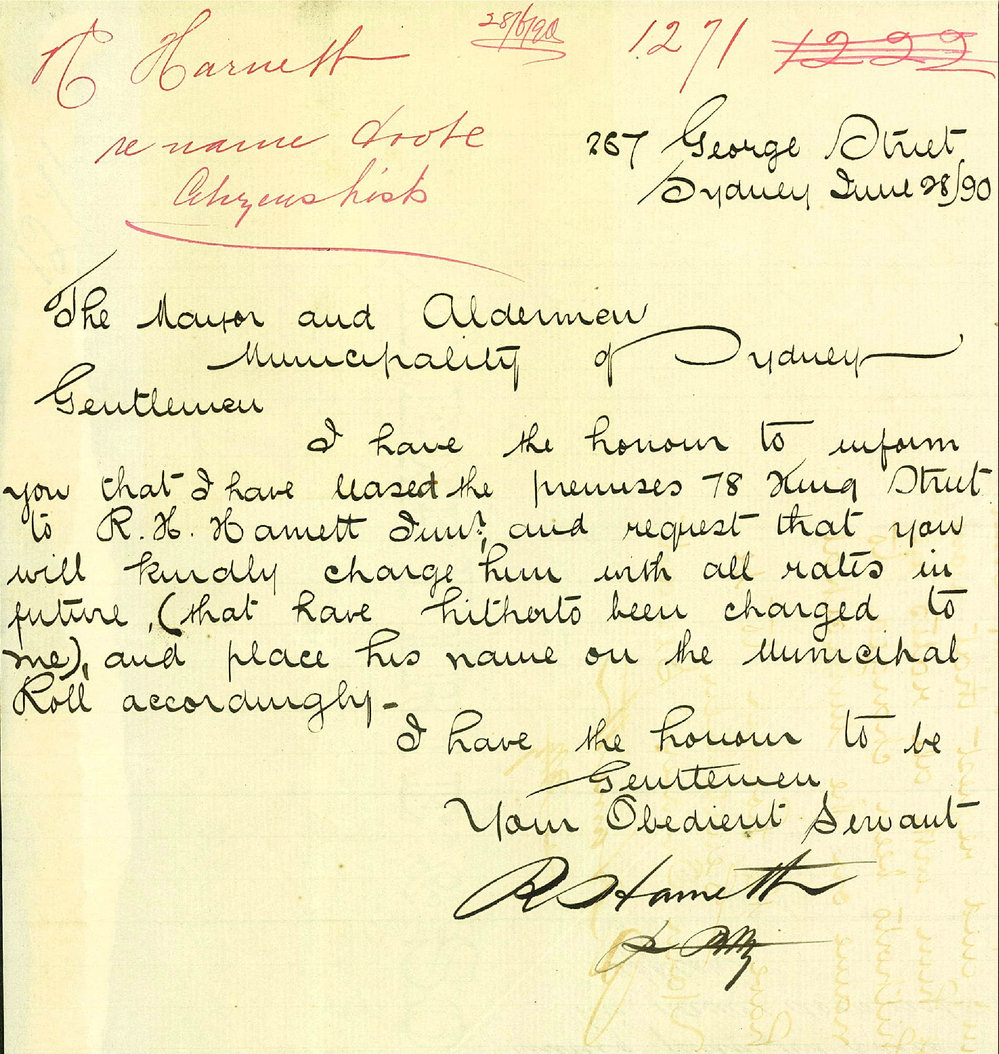 R Harnett
28/6/90
1271 1222
re name
Citizens Lists
267 George Street
Sydney June 28/90
The Mayor and Aldermen
Municipality of Sydney
Gentlemen
I have the honour to inform
you that I have leased the premises 78 King Street
to R. H. Harnett Junr, and request that you
will kindly charge him with all rates in
future, (that have hitherto been charged to
me), and place his name on the Municipal
Roll accordingly-
I have the honour to be
Gentlemen
Your Obedient Servant
R Harnett